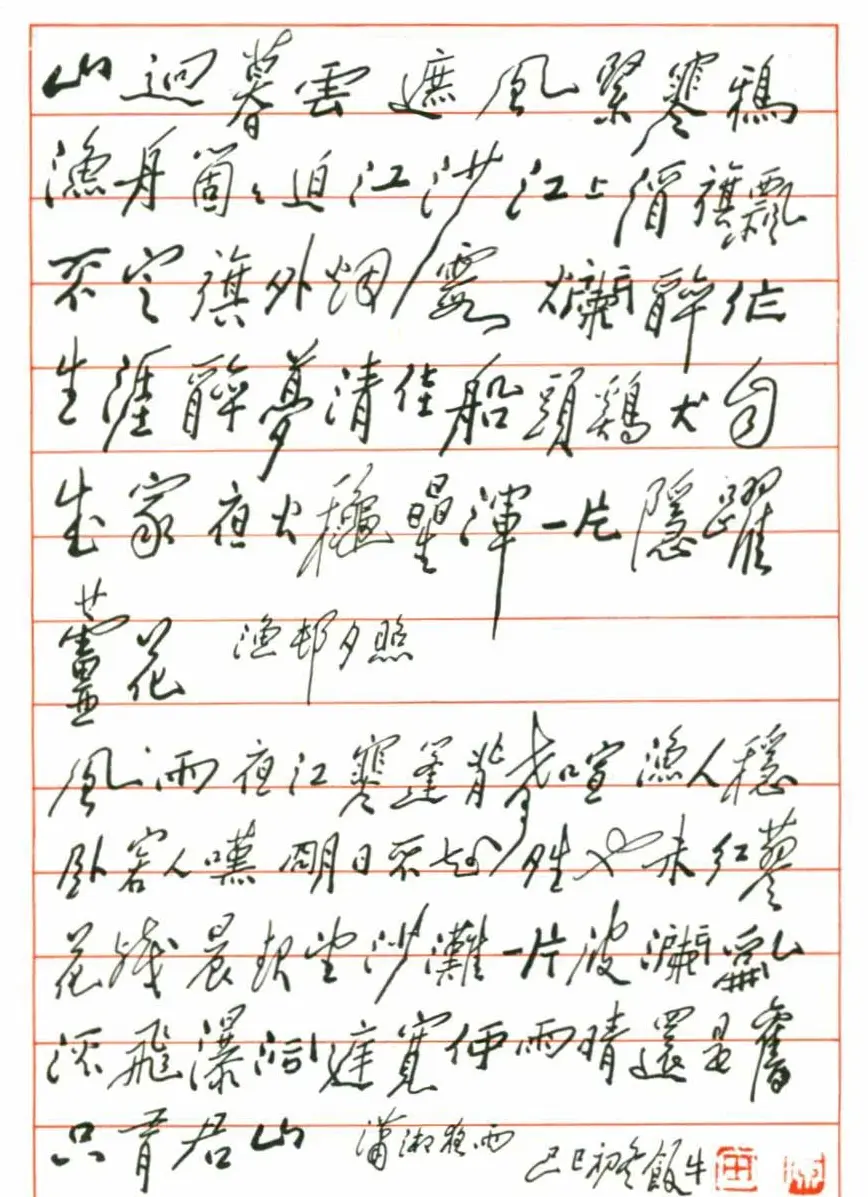 山迥暮雲遮風緊寒鴉
漁舟箇々迫江沙江上酒旗飄
不定旗外烟霞 爛醉作
生涯醉夢清佳船頭鷄犬自
成家夜火龝星渾一片隱躍
蘆花 漁邨夕照
風雨夜江寒篷背聲喧漁人穩
臥客人嘆明日不知晴也未紅蓼
花殘晨起望沙灘一片波瀾亂
流飛瀑洞庭寬便雨晴還是舊
只有君山 瀟湘夜雨 己巳初冬飯牛